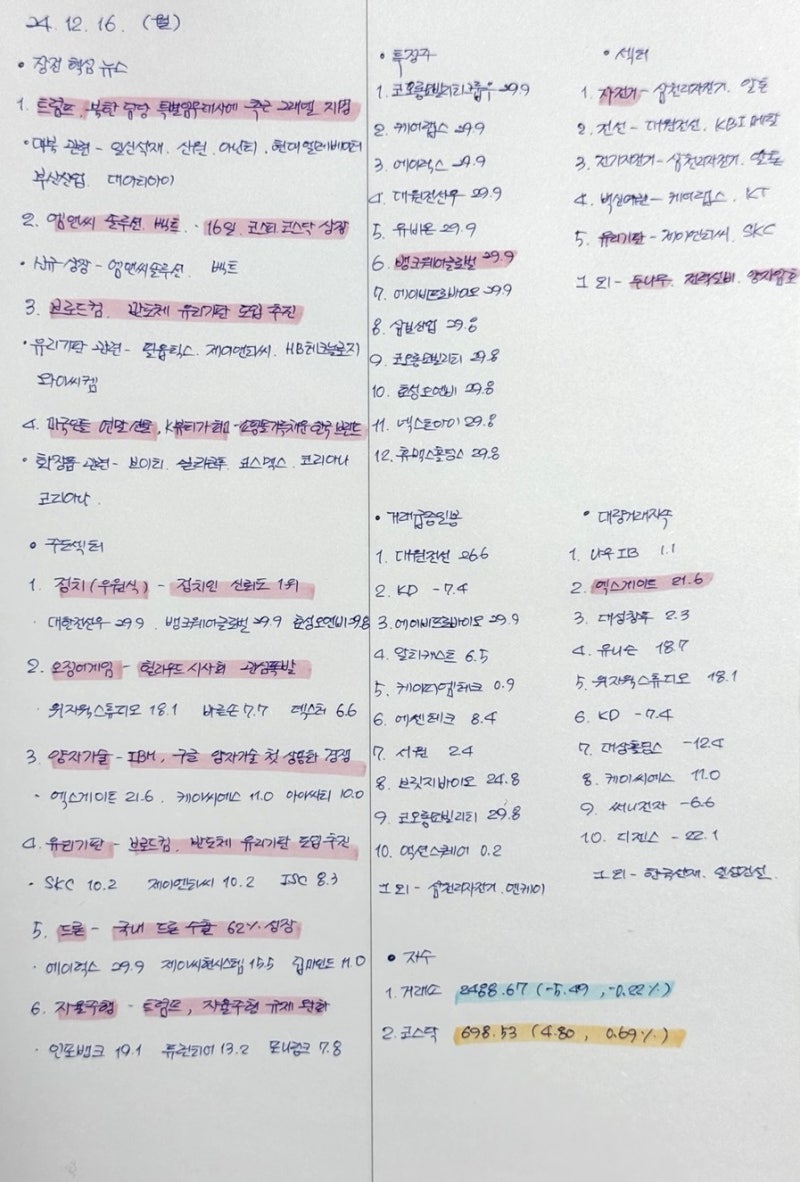 24. 12. 16. (월)
• 장전 핵심 뉴스
1. 트럼프, 북한 담당 특별임무대사에 측근 그레넬 지명
• 대북 관련 - 일신석재. 산원. 아난티. 현대엘레베이터
부산산업. 대아티아이
2. 엠앤씨 솔루션 벡트. · 16일. 코스피 코스닥 상장
• 신규상장 - 엠앤씨솔루션. 벡트
3. 브로드컴, 반도체 유리기판 도입 추진
• 유리기판 관련 - 필옵틱스. 제이앤티씨. HB테크놀로지
와이씨켐
4. 미국인들 연말 선물, K뷰티가 최고 - 쇼핑몰 가득채운 한국 브랜드
• 화장품 관련 - 브이티. 실리콘투. 코스맥스. 코리아나
코리아나.
• 주도섹터
1. 정치(우원식) - 정치인 신뢰도 1위
· 대한전선우 29.9 뱅크웨어글로벌 29.9 효성오앤비 29.8
2. 오징어게임 - 헐리우드 시사회 관심폭발
· 위지윅스튜디오 18.1 바른손 7.7 덱스터 6.6
3. 양자기술 - IBM, 구글 양자기술 첫 상용화 경쟁
· 엑스게이트 21.6 케이씨에스 11.0 아이씨티 10.0
4. 유리기판 - 브로드컴, 반도체 유리기판 도입 추진
· SKC 10.2 제이앤티씨 10.2 ISC 8.3
5. 드론 - 국내 드론 수출 62% 성장
· 에이럭스 29.9 제이씨현시스템 15.5 팁마인드 11.0
6. 자율주행 - 트럼프, 자율주행 규제 완화
· 인포뱅크 19.1 퓨런티어 13.2 모나링크 7.8
• 특징주
1. 코오롱모빌리티그룹우 29.9
2. 케어랩스 29.9
3. 에이럭스 29.9
4. 대원전선우 29.9
5. 유비온 29.9
6. 뱅크웨어글로벌 29.9
7. 에이비프로바이오 29.9
8. 삼보산업 29.8
9. 코오롱모빌리티 29.8
10. 효성오앤비 29.8
11. 넥스트아이 29.8
12. 휴맥스홀딩스 29.8
• 섹터
1. 자전거 - 삼천리자전거. 알톤
2. 전선 - 대원전선. KBI메탈
3. 전기자전거 - 삼천리자전거. 알톤
4. 백신여권 - 케어랩스. KT
5. 유리기판 - 제이앤티씨. SKC
그 외 - 두나무. 전력설비. 양자암호
• 거래급증일봉
1. 대원전선 26.6
2. KD -7.4
3. 에이비프로바이오 29.9
4. 알티캐스트 6.5
5. 케이디엠테크 0.9
6. 에센테크 8.4
7. 서원 2.4
8. 브릿지바이오 24.8
9. 코오롱모빌리티 29.8
10. 액션스퀘어 0.2
그 외 - 삼천리자전거. 엔케이
• 대량거래지속
1. 나우IB 1.1
2. 엑스게이트 21.6
3. 대성창투 2.3
4. 유니슨 18.7
5. 위지윅스튜디오 18.1
6. KD -7.4
7. 대상홀딩스 -12.4
8. 케이씨에스 11.0
9. 써니전자 -6.6
10. 디젠스 -22.1
그 외 - 한국선재. 일성건설.
• 지수
1. 거래소 2488.67 (-5.49, -0.22%)
2. 코스닥 698.53 (4.80, 0.69%)